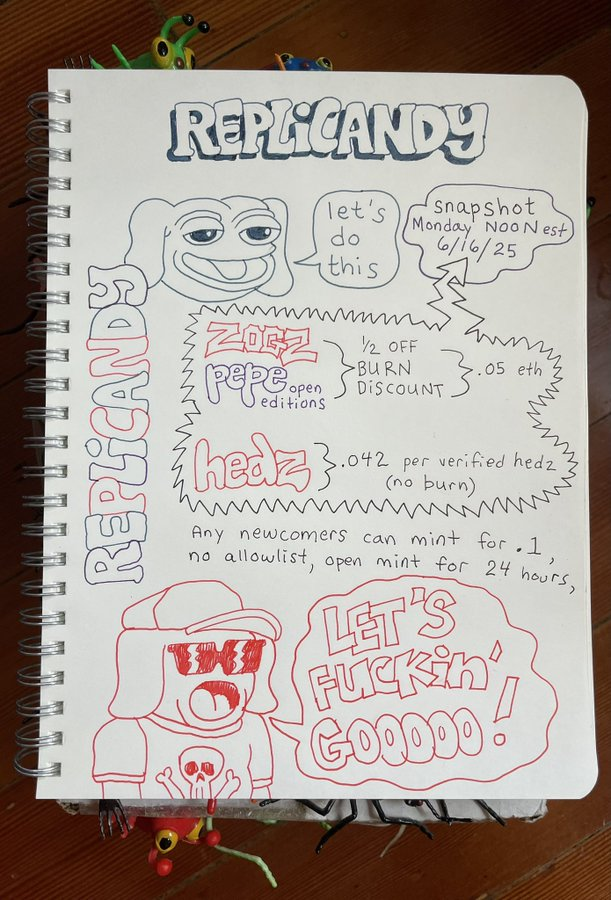 REPLiCANDY
let's
do
this
snapshot
Monday NOON est
6/16/25
REPLiCANDY
ZOGZ
pepe open
editions
1/2 OFF
BURN
DISCOUNT
.05 eth
hedz
.042 per verified hedz
(no burn)
Any newcomers can mint for .1,
no allowlist, open mint for 24 hours,
LET'S
FUCKiN'
GOOOOO!